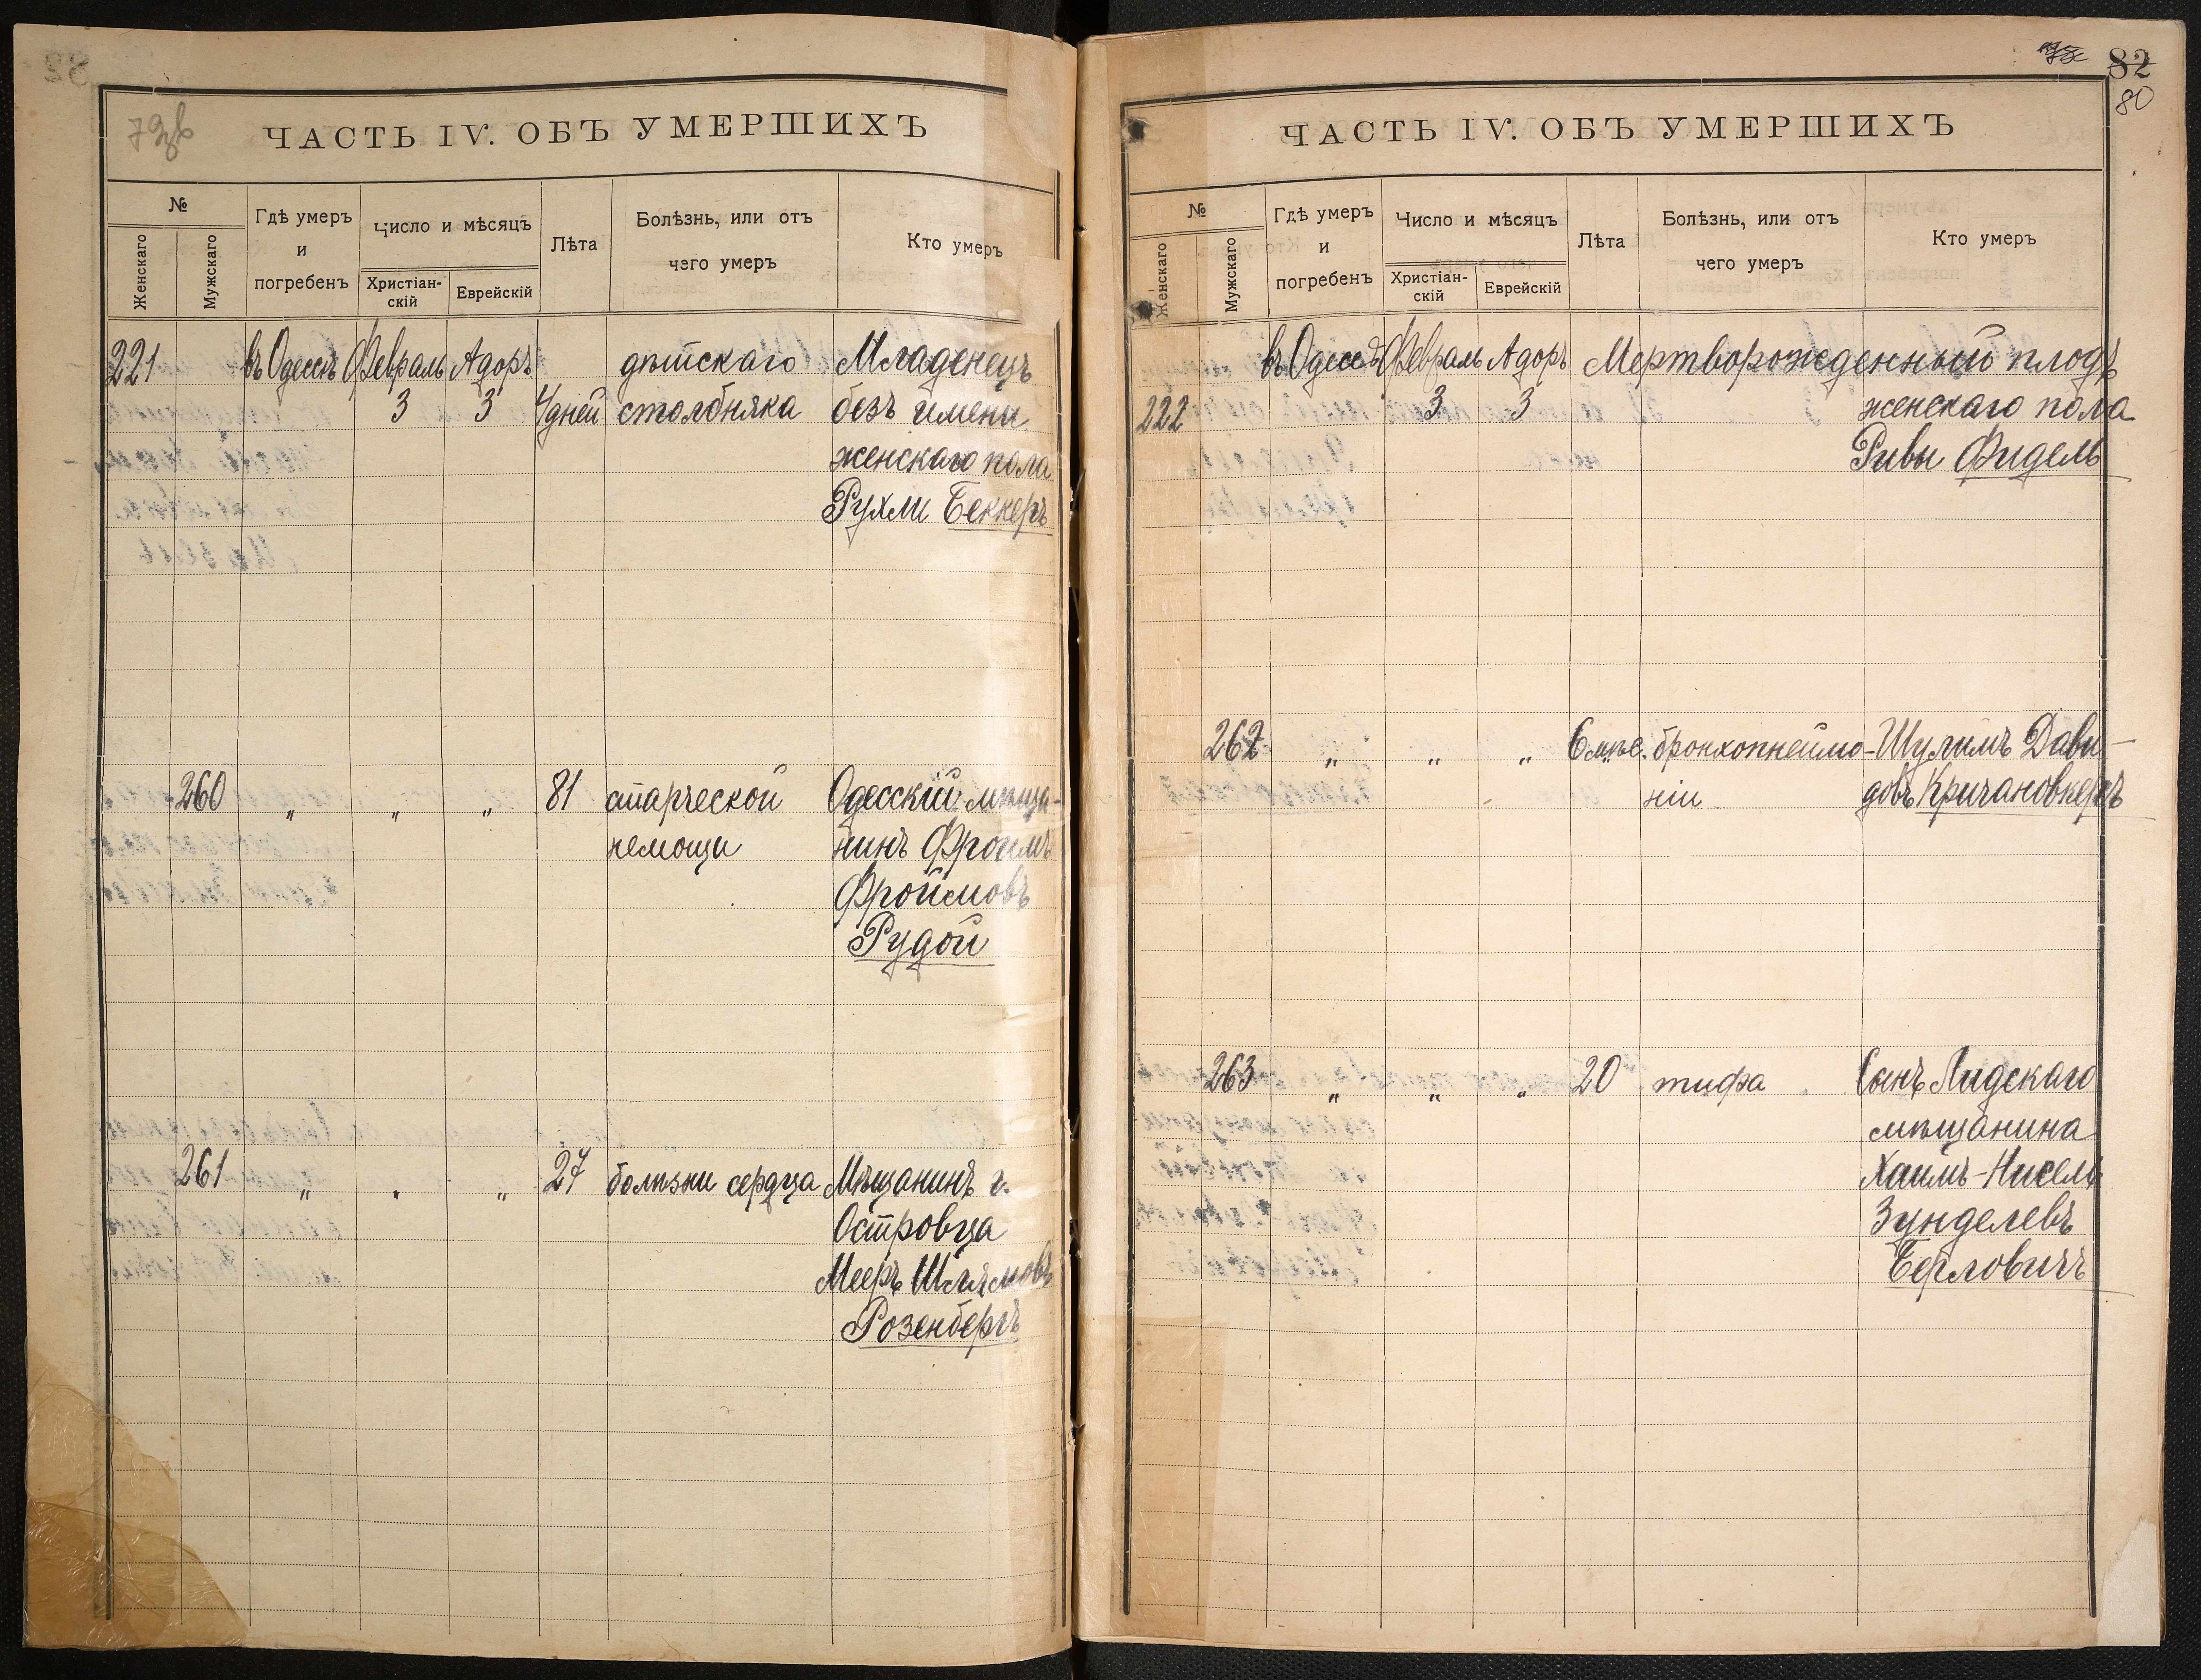 79об
ЧАСТЬ IV. ОБЪ УМЕРШИХЪ
№
Женскаго
Мужскаго
Гдѣ умеръ
и
погребенъ
Число и мѣсяцъ
Христіан-
скій
Еврейскій
Лѣта
Болѣзнь, или отъ
чего умеръ
Кто умеръ
221 въ Одессѣ Февраль Адоръ дѣтскаго Младенецъ
3 3 4 дней столбняка безъ имени
женскаго пола
Рухли Беккеръ
260 „ „ „ 81 старческой Одесскій мѣща-
немощи нинъ Фроимъ
Фроймовъ
Рудой
261 „ „ „ 27 болѣзни сердца Мѣщанинъ г.
Островца
Мееръ Шлямовъ
Розенбергъ
82
80
ЧАСТЬ IV. ОБЪ УМЕРШИХЪ
№
Женскаго
Мужскаго
Гдѣ умеръ
и
погребенъ
Число и мѣсяцъ
Христіан-
скій
Еврейскій
Лѣта
Болѣзнь, или отъ
чего умеръ
Кто умеръ
въ Одессѣ Февраль Адоръ Мертворожденный плодъ
222 3 3 женскаго пола
Ривы Фидель
262 „ „ „ 6 мѣс. бронхопнеймо- Шулимъ Дави-
ніи довъ Кричановкеръ
263 „ „ „ 20 тифа Сынъ Лидскаго
мѣщанина
Хаимъ-Нисель
Зунделевъ
Берловичъ